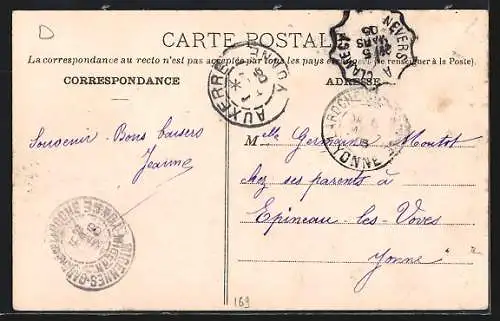 D
CARTE POSTALE
La correspondance au recto n'est pas acceptée par tous les pays étrangers (se renseigner à la Poste).
CORRESPONDANCE
ADRESSE
NEVERS A CLAMECY
5
MARS
05
AUXERRE YONNE
LAROCHE
YONNE
Souvenir - Bons baisers
Jeanne
Melle Germaine Moutot
chez ses parents à
Epineau-les-Voves
Yonne
LAROCHE
169